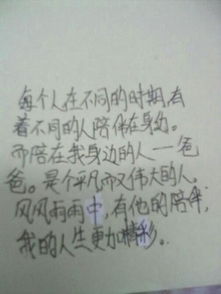 每个人在不同的时期,有
着不同的人陪伴在身边。
而陪在我身边的人——爸
爸。是个平凡而又伟大的人。
风风雨雨中,有他的陪伴,
我的人生更加精彩。